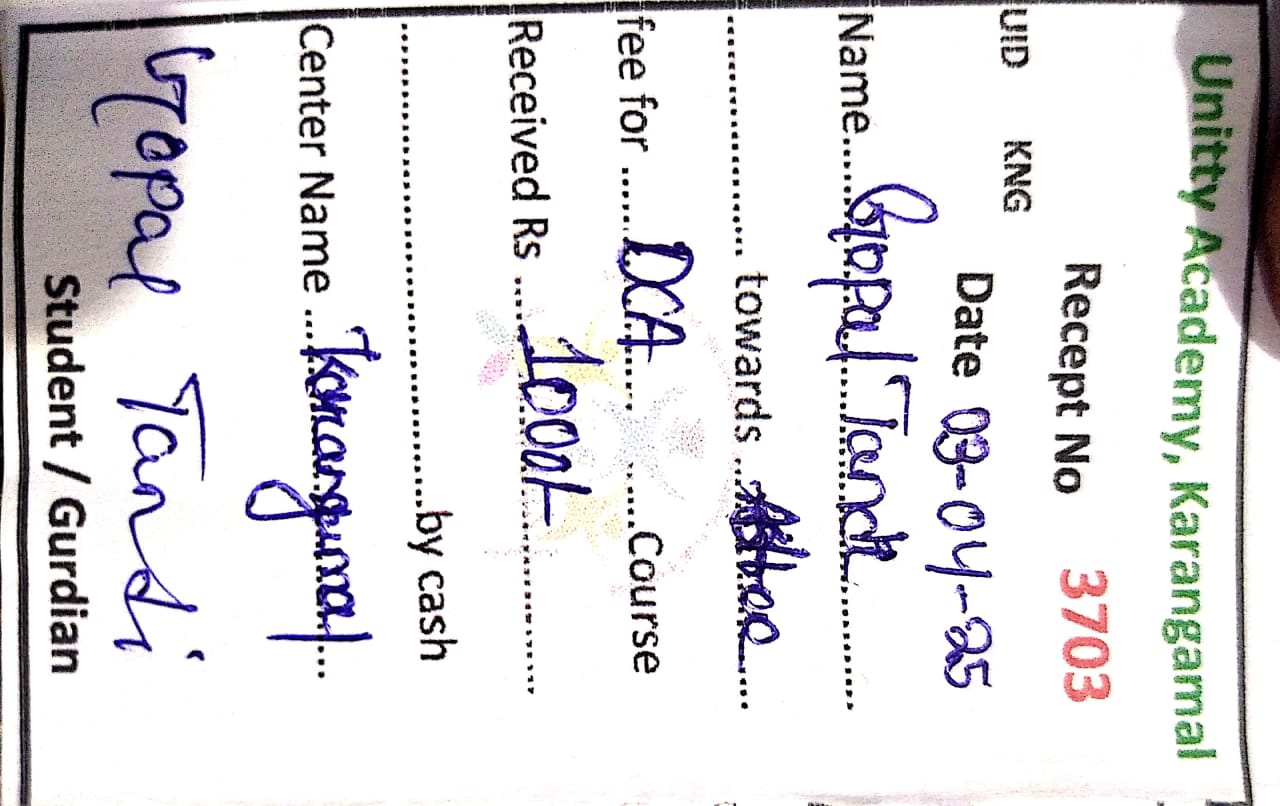 Unitty Academy, Karangamal
Recept No 3703
UID KNG
Date 03-04-25
Name.....Gopal Tandi..........
................ towards .............
fee for ......DCA...... ......Course
Received Rs .....1000/-...............
........................................by cash
Center Name ....Karangamal...
Gopal Tandi
Student / Gurdian